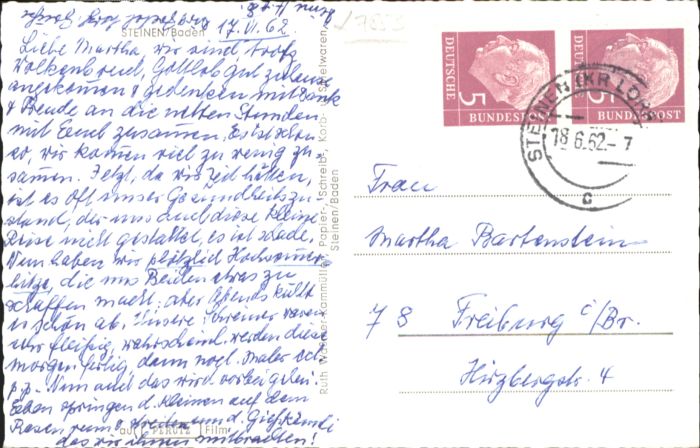 STEINEN/Baden
17.VI.62
Liebe Martha, wir sind trotz
Wolkenbruch, Gottlob gut zuhause
angekommen & gedenken mit Dank
& Freude an die netten Stunden
mit Euch zusammen. Es ist schon
so, wir kommen viel zu wenig zu-
samen. Jetzt, da wir Zeit hätten,
ist es oft unser Gesundheitszu-
stand, der uns auch diese kleine
Reise nicht gestattet, es ist schade.
Nun haben wir plötzlich Hochsommer-
hitze, die uns Beiden etwas zu
schaffen macht, aber Abends kühlt
es schön ab. Unsere waren
sehr fleißig, wahrscheinl. werden diese
morgen fertig, dann noch Maler etc.
p.p. Nun auch das wird vorbei gehen.
Eben springen d. Kleinen auf dem
Rasen rum & und d. Gießkännli
das wir ihnen mitbrachten!
auf PERUTZ Film
Papier-, Schreib-, Korb- Spielwaren
Steinen/Baden
1793
DEUTSCHE
BUNDESPOST
5
DEUTSCHE
BUNDESPOST
5
STEINEN (KR LÖRR
18.6.62.-7
c
Frau
Martha Bartenstein
78 Freiburg i/Br.
Hirzbergstr. 4